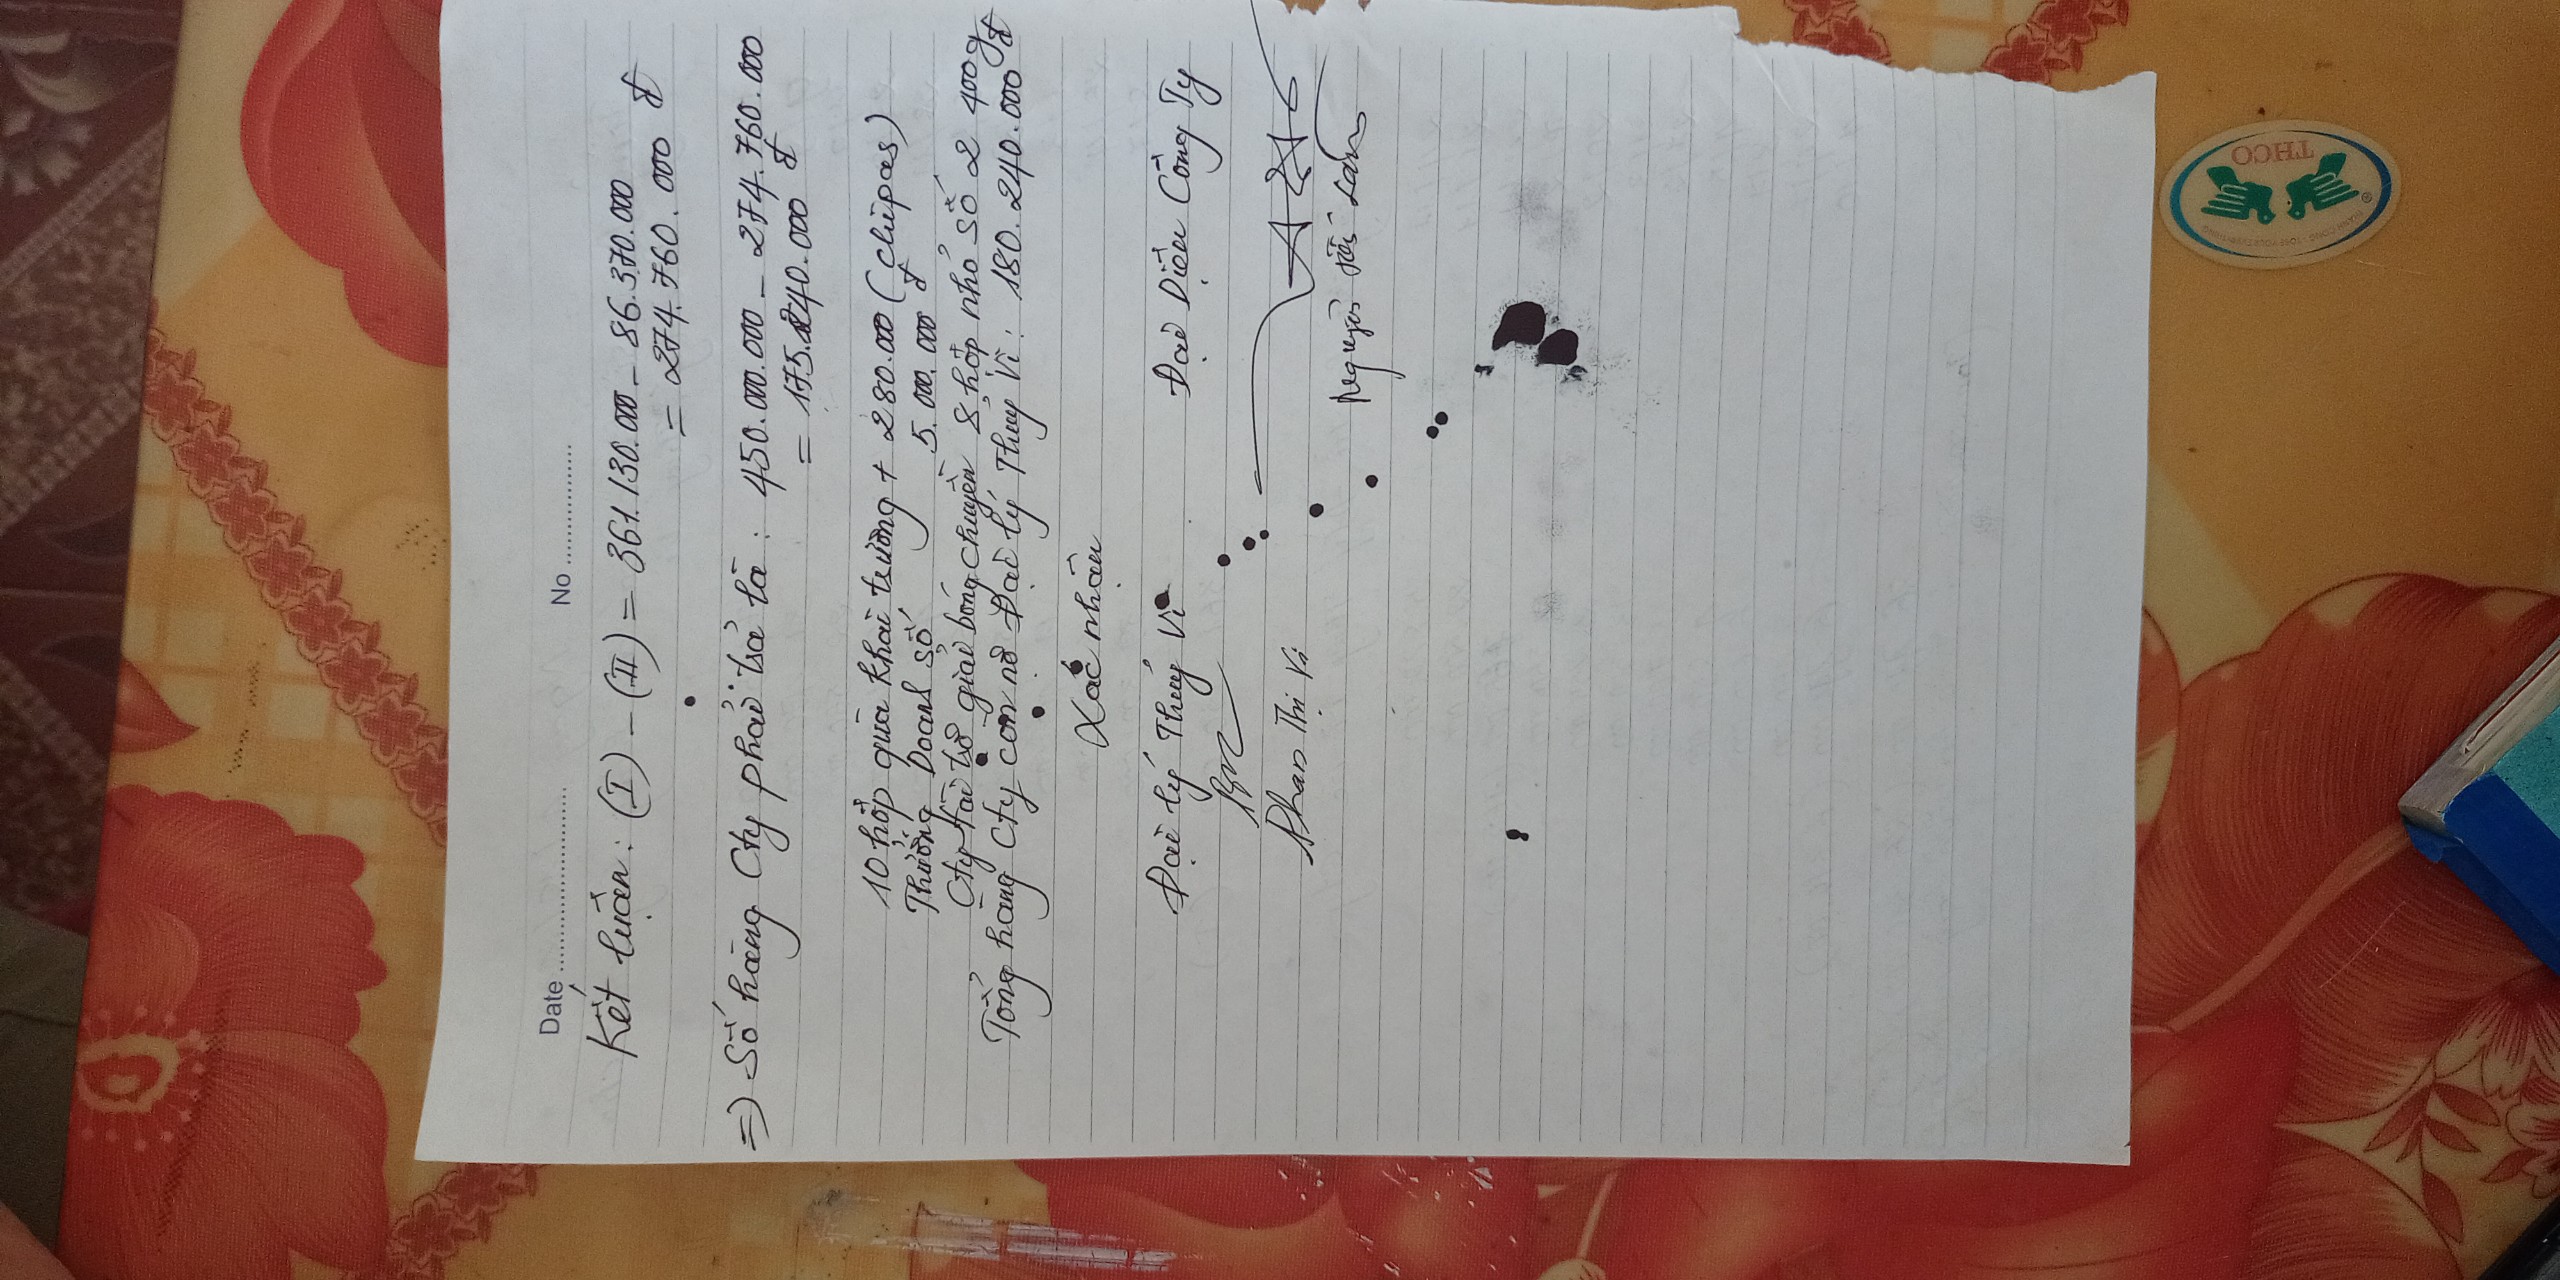 Date No
Kết luận: (I) - (II) = 361.130.000 - 86.370.000
= 274.760.000 đ
=) Số hàng Cty phải trả là: 450.000.000 - 274.760.000
= 175.240.000 đ
10 hộp quà khai trương + 280.000 (clipas)
Thưởng Doanh số 5.000.000 đ
Cty tài trợ giải bóng chuyền 8 hộp nhỏ số 2 400g
Tổng hàng Cty còn nợ Đại lý Thuý Vi: 180.240.000 đ
Xác nhận
Đại lý Thuý Vi Đại Diện Công Ty
Phan Thị Vi Nguyễn
THCO